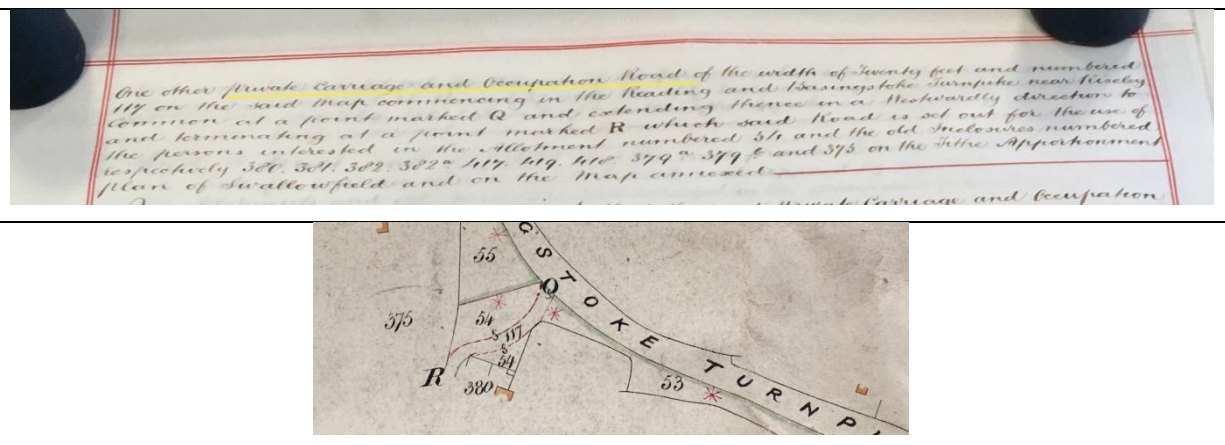 One other private Carriage and Occupation Road of the width of Twenty feet and numbered
117 on the said Map commencing in the Reading and Basingstoke Turnpike near Riseley
Common at a point marked Q and extending thence in a Westwardly direction to
and terminating at a point marked R which said Road is set out for the use of
the persons interested in the Allotment numbered 54 and the old Inclosures numbered
respectively 380. 381. 382. 382a 417. 419. 418. 379a 379b and 375 on the Tithe Apportionment
plan of Swallowfield and on the Map annexed.
Private Carriage and Occupation
GSTOKE TURNP
55
Q
375
54
S 117
S
54
R
380
53